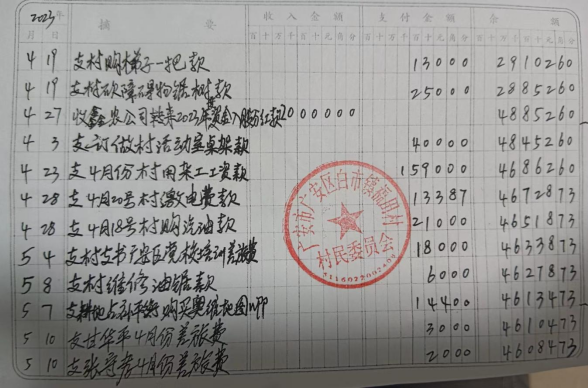 2023年 摘 要 收入金额 支付金额 余 额
月 日 百十万千百十元角分 百十万千百十元角分 百十万千百十元角分
4 19 支村购梯子一把款 13000 2910260
4 19 支村砍障碍物锯树款 25000 2885260
4 27 收鑫农公司转来2023年资金入股分红款 2000000 4885260
4 3 支订做村活动室桌架款 40000 4845260
4 23 支4月份村用杂工工资款 159000 4686260
4 28 支4月20号村缴电费款 13387 4672873
4 28 支4月18号村购汽油款 21000 4651873
5 4 支村支书广安区党校培训差旅费 18000 4633873
5 8 支村维修油锯款 6000 4627873
5 7 支耕地占补平衡购买奥维地图APP 14400 4613473
5 10 支甘华平4月份差旅费 3000 4610473
5 10 支张 4月份差旅费 2000 4608473
广安市广安区白市镇 田村
村民委员会